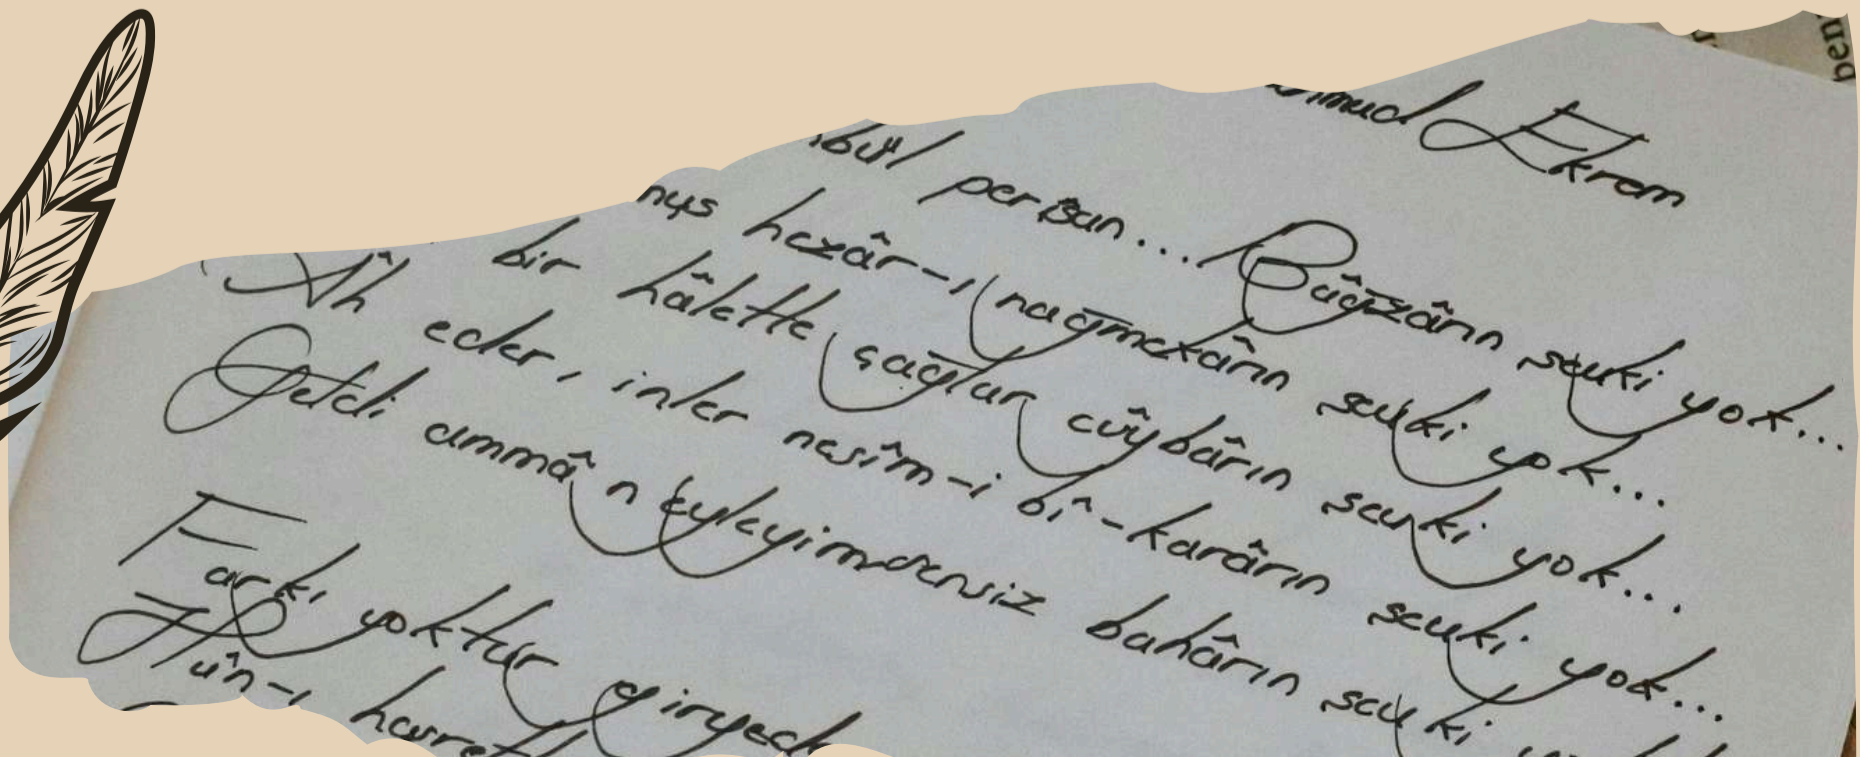 Ekrem
perîşan... Bâğzârın şevki yok...
hezâr-ı nağmekârın şevki yok...
bir hâlette çağlar cûybârın şevki yok...
Âh eder, inler nesîm-i bî-karârın şevki yok...
Geldi ammâ n'eyleyim sensiz bahârın şevki yok
Farkı yoktur
Hûn-ı
ben